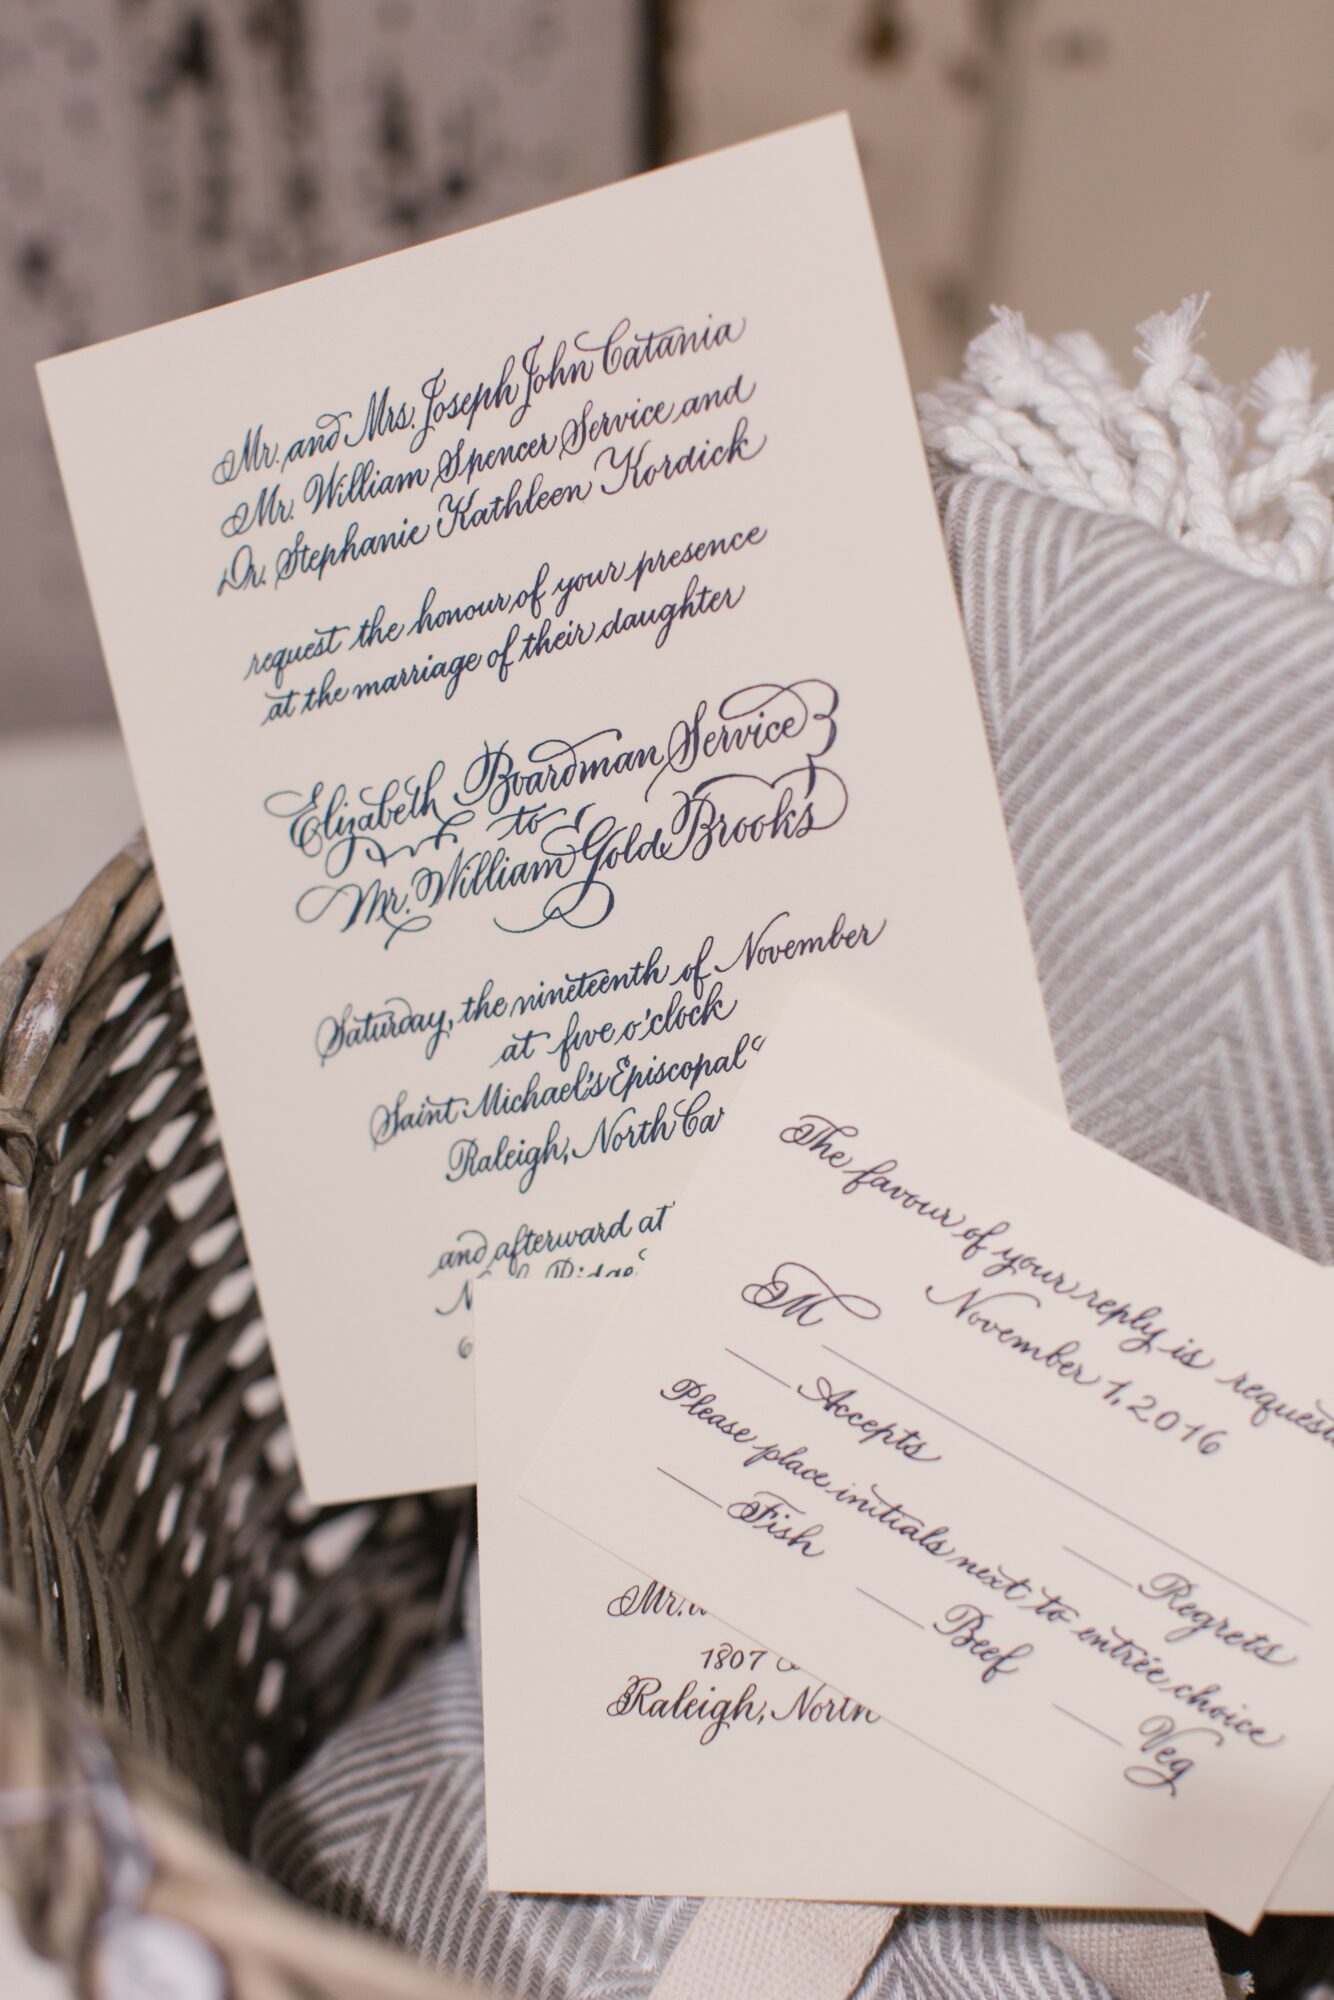 Mr. and Mrs. Joseph John Catania
Mr. William Spencer Service and
Dr. Stephanie Kathleen Kordick
request the honour of your presence
at the marriage of their daughter
Elizabeth Boardman Service
to
Mr. William Gold Brooks
Saturday, the nineteenth of November
at five o'clock
Saint Michael's Episcopal
Raleigh, North Ca
and afterward at
Ridge
6
The favour of your reply is request
November 1, 2016
M
Accepts
Regrets
Please place initials next to entrée choice
Fish
Beef
Veg
Mr.
1807
Raleigh, North